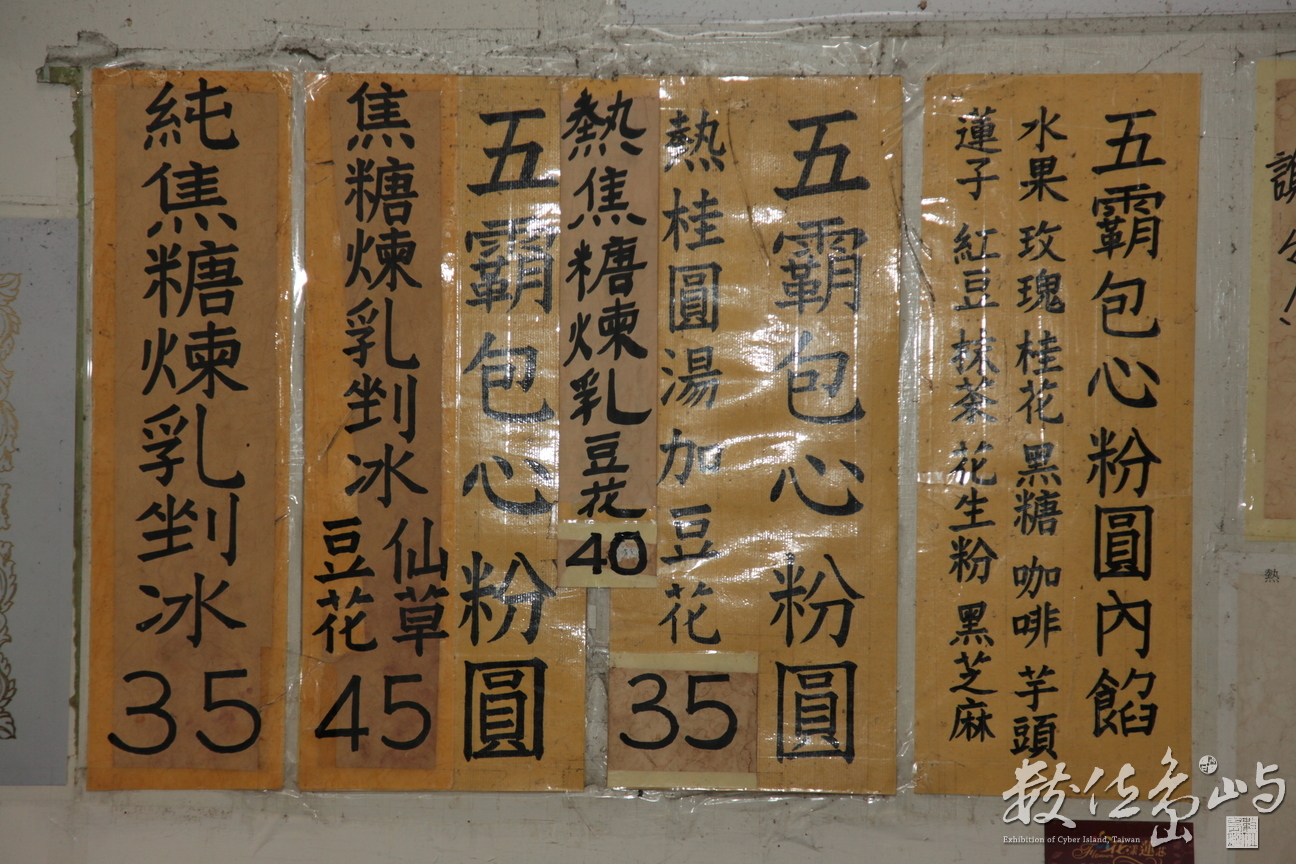 五霸包心粉圓內餡
水果 玫瑰 桂花 黑糖 咖啡 芋頭
蓮子 紅豆 抹茶 花生粉 黑芝麻
五霸包心粉圓
熱桂圓湯加豆花
35
熱焦糖煉乳豆花
40
五霸包心粉圓
焦糖煉乳剉冰
仙草
豆花
45
純焦糖煉乳剉冰
35
熱
數位島嶼
Exhibition of Cyber Island, Taiwan